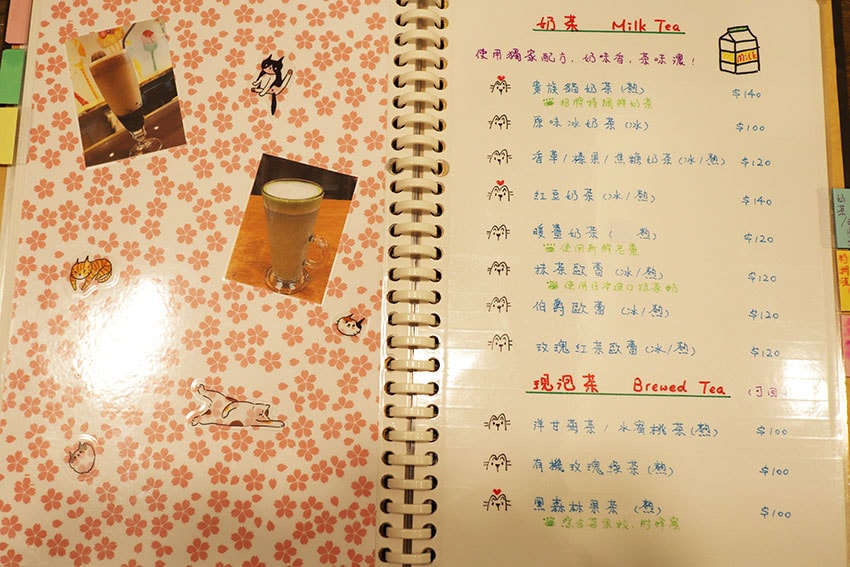 奶茶 Milk Tea
使用獨家配方，奶味香，茶味濃！
Milk
貴族貓奶茶（熱） $140
招牌特調鮮奶茶
原味冰奶茶（冰） $100
香草/榛果/焦糖奶茶（冰/熱） $120
紅豆奶茶（冰/熱） $140
暖薑奶茶（ 熱） $120
使用新鮮老薑
抹茶歐蕾（冰/熱） $120
使用日本進口抹茶粉
伯爵歐蕾（冰/熱） $120
玫瑰紅茶歐蕾（冰/熱） $120
現泡茶 Brewed Tea （可回
洋甘菊茶/水蜜桃茶（熱） $100
有機玫瑰綠茶（熱） $100
黑森林果茶（熱） $100
綜合莓果粒，附蜂蜜
奶茶/